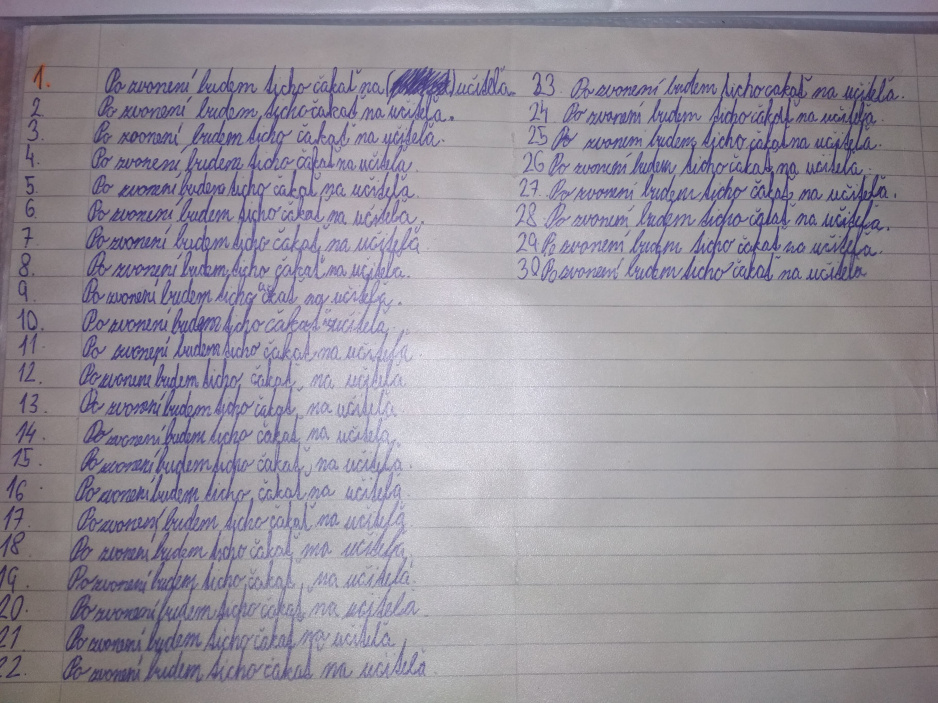 1. Po zvonení budem ticho čakať na () učiteľa.
2. Po zvonení budem ticho čakať na učiteľa.
3. Po zvonení budem ticho čakať na učiteľa.
4. Po zvonení budem ticho čakať na učiteľa.
5. Po zvonení budem ticho čakať na učiteľa.
6. Po zvonení budem ticho čakať na učiteľa.
7. Po zvonení budem ticho čakať na učiteľa
8. Po zvonení budem ticho čakať na učiteľa.
9. Po zvonení budem ticho čakať na učiteľa.
10. Po zvonení budem ticho čakať učiteľa.
11. Po zvonení budem ticho čakať na učiteľa.
12. Po zvonení budem ticho čakať na učiteľa
13. Po zvonení budem ticho čakať na učiteľa
14. Po zvonení budem ticho čakať na učiteľa.
15. Po zvonení budem ticho čakať na učiteľa.
16. Po zvonení budem ticho čakať na učiteľa.
17. Po zvonení budem ticho čakať na učiteľa
18. Po zvonení budem ticho čakať na učiteľa
19. Po zvonení budem ticho čakať na učiteľa.
20. Po zvonení budem ticho čakať na učiteľa.
21 Po zvonení budem ticho čakať na učiteľa
22. Po zvonení budem ticho čakať na učiteľa.
23. Po zvonení budem ticho čakať na učiteľa.
24 Po zvonení budem ticho čakať na učiteľa.
25 Po zvonení budem ticho čakať na učiteľa.
26 Po zvonení budem ticho čakať na učiteľa.
27. Po zvonení budem ticho čakať na učiteľa.
28 Po zvonení budem ticho čakať na učiteľa.
29 Po zvonení budem ticho čakať na učiteľa.
30 Po zvonení budem ticho čakať na učiteľa